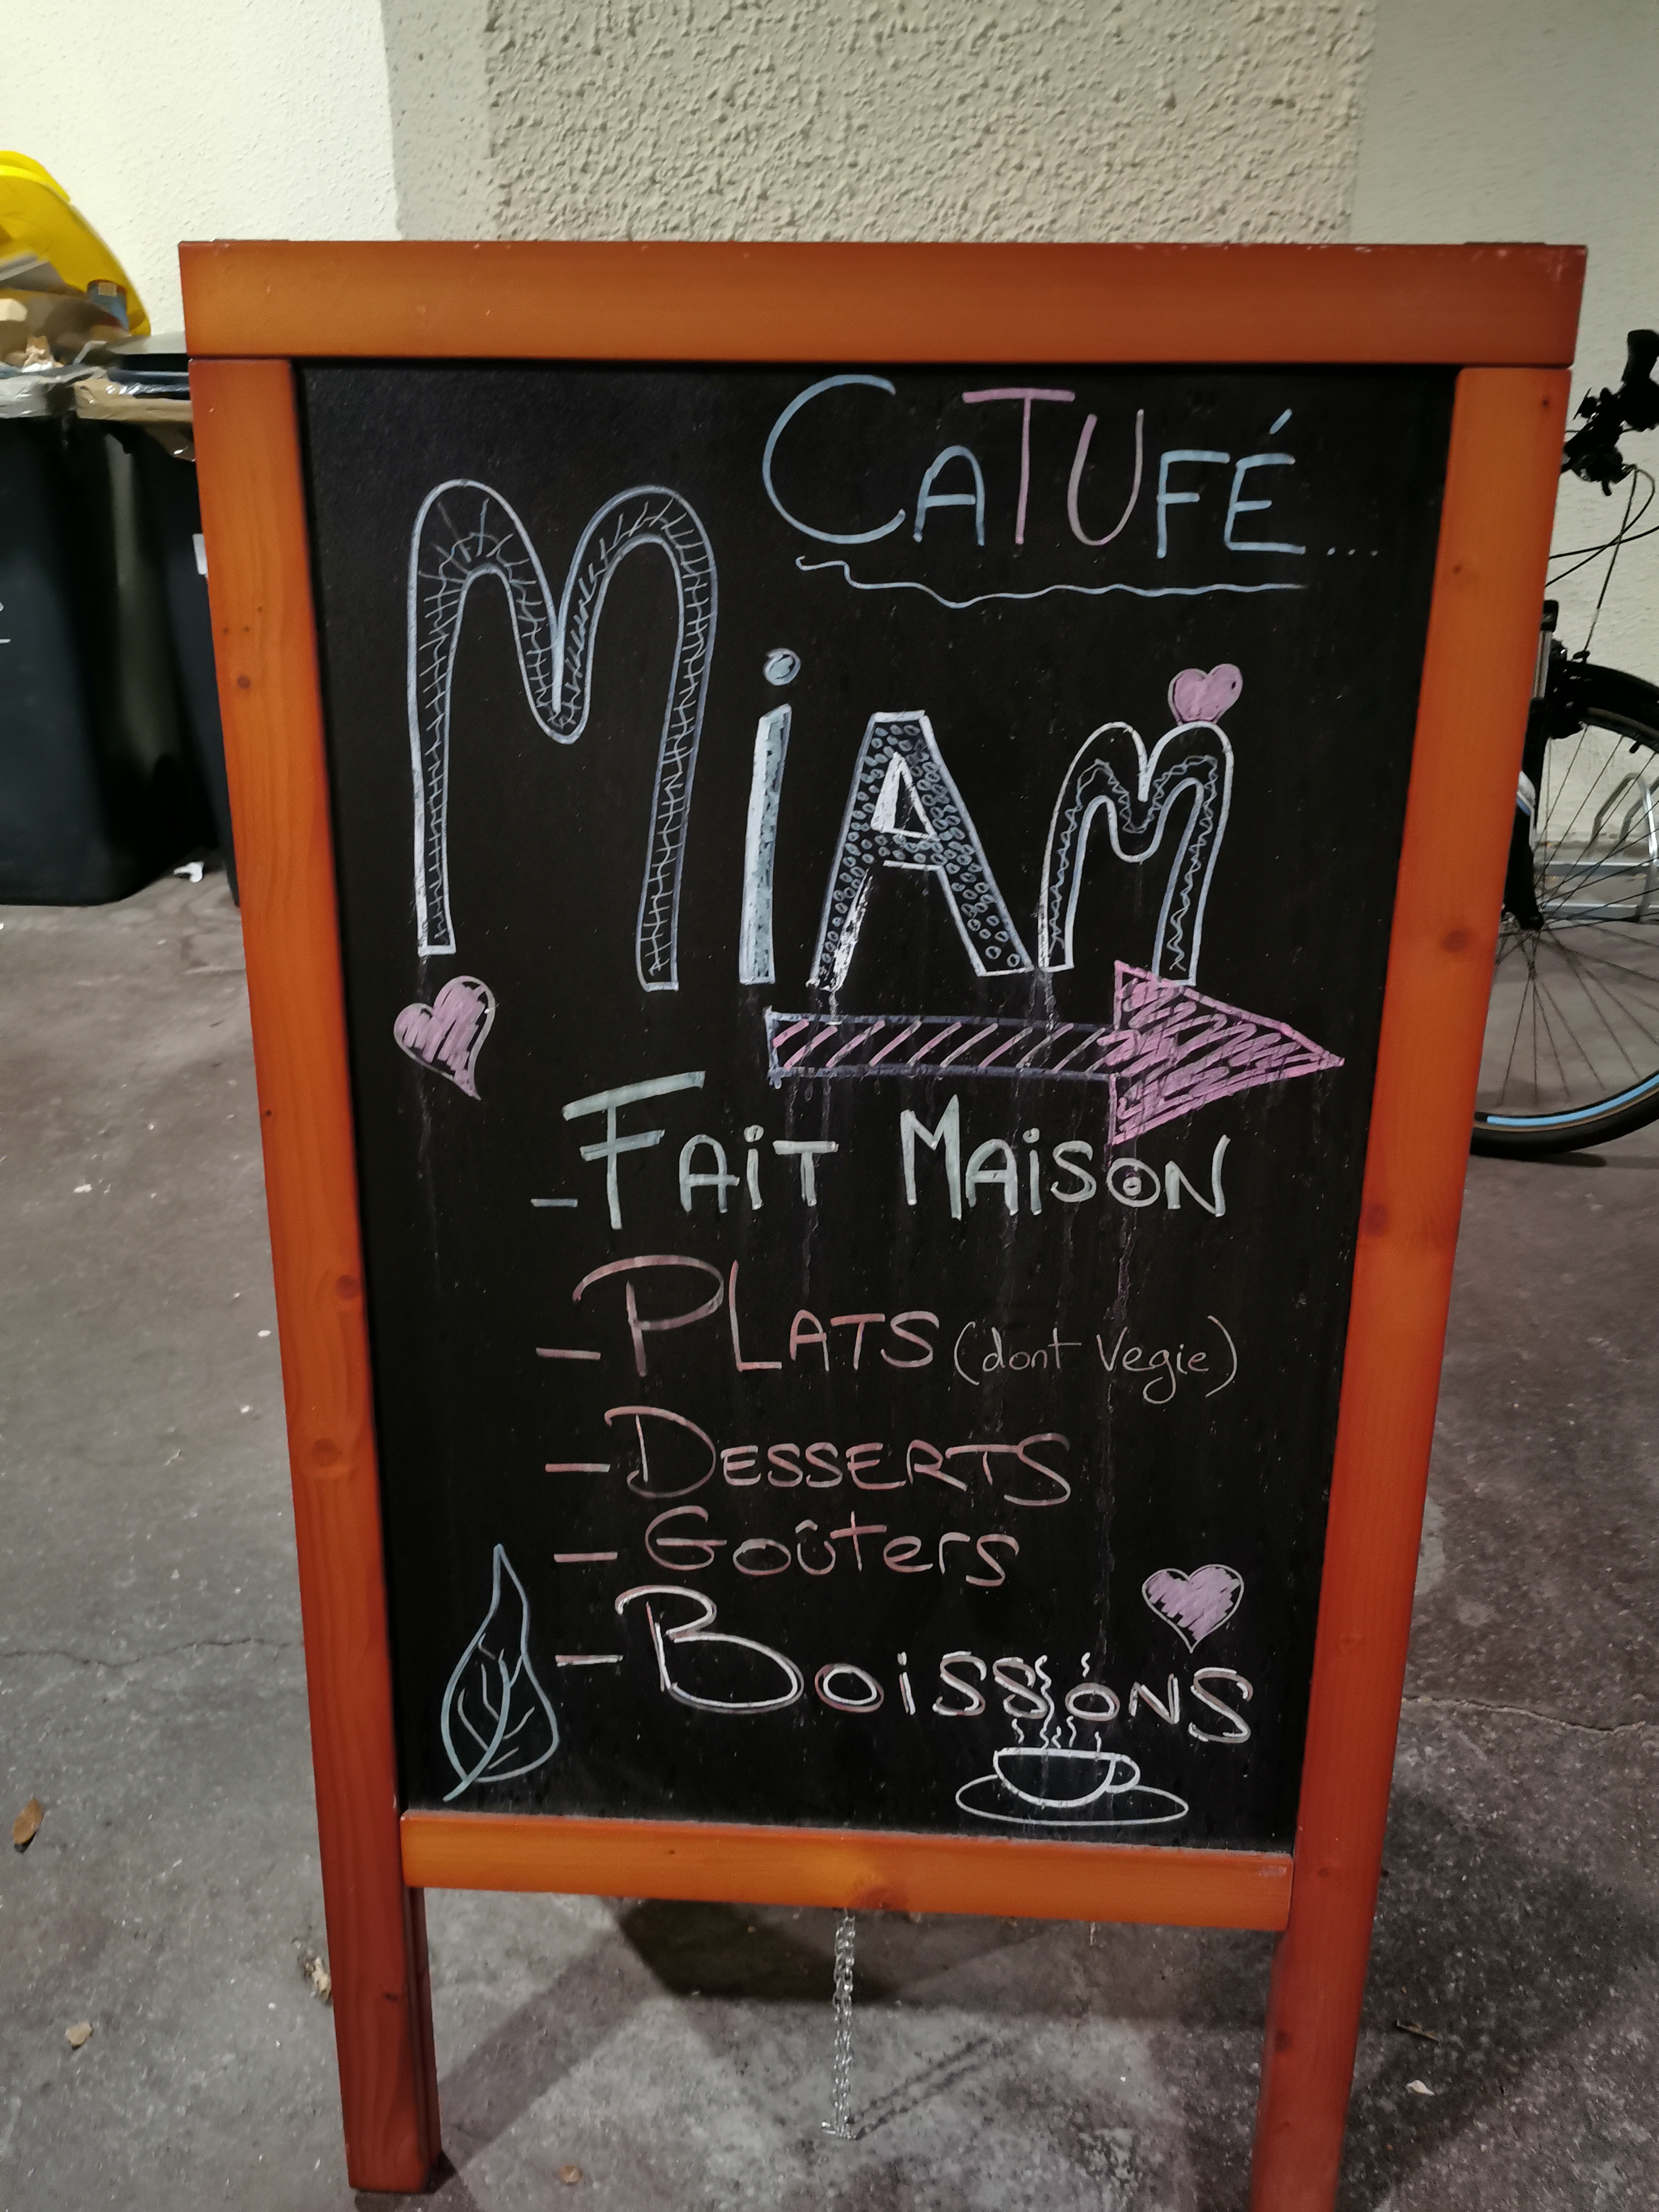 CATUFÉ...
MiAM
- FAiT MAiSON
- PLATS (dont Vegie)
- DESSERTS
- Goûters
- BOiSSONS